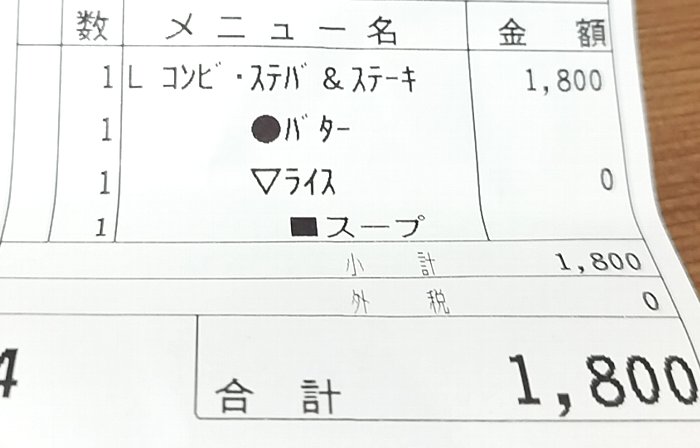 数 メニュー名 金 額
1 L ｺﾝﾋﾞ・ｽﾃﾊﾞ&ｽﾃｰｷ 1,800
1 ●ﾊﾞﾀｰ
1 ▽ﾗｲｽ 0
1 ■スープ
小 計 1,800
外 税 0
4 合 計 1,800